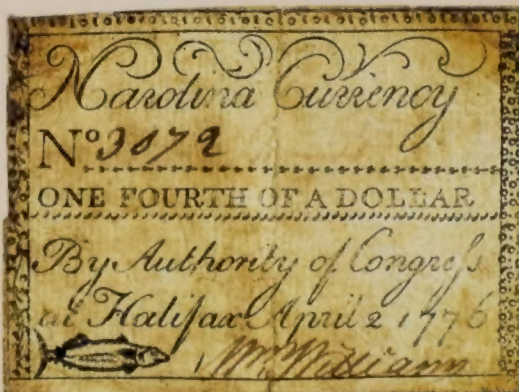 N Carolina Currency
No 3072
ONE FOURTH OF A DOLLAR
By Authority of Congress
at Halifax April 2 1776
Wm Williams